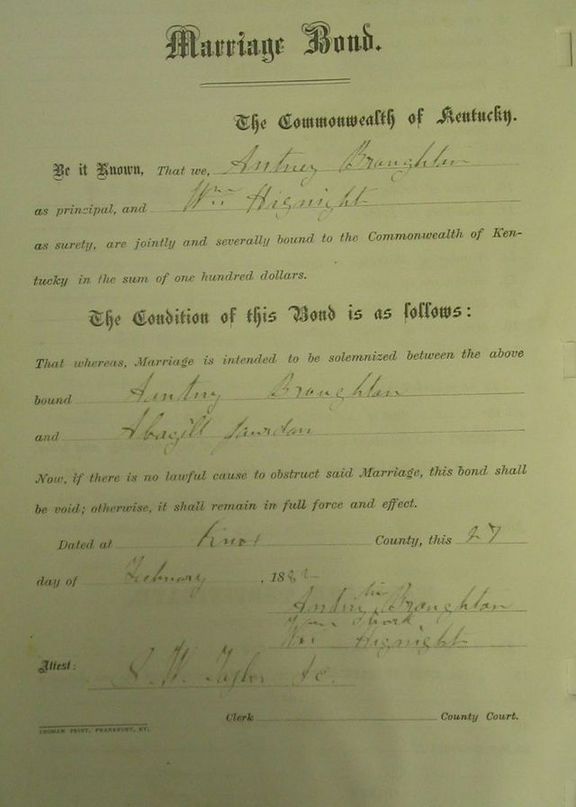 Marriage Bond.
The Commonwealth of Kentucky.
Be it Known, That we, Antney Broughton
as principal, and Wm Hignight
as surety, are jointly and severally bound to the Commonwealth of Ken-
tucky in the sum of one hundred dollars.
The Condition of this Bond is as follows:
That whereas, Marriage is intended to be solemnized between the above
bound Antney Broughton
and Abagill Jourdan
Now, if there is no lawful cause to obstruct said Marriage, this bond shall
be void; otherwise, it shall remain in full force and effect.
Dated at Knox County, this 27
day of February, 188
Broughton
Wm Hignight
Attest:
Taylor
Clerk County Court.
PRINT, FRANKFORT, KY.